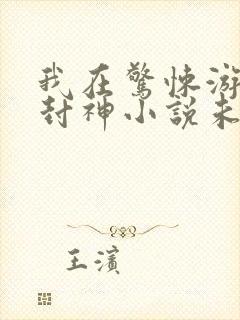 我在驚悚游
封神小說未
王濱